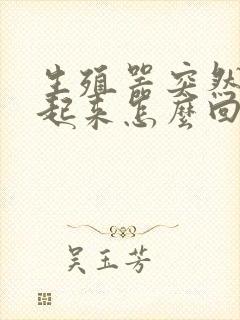 生殖器突然
起来怎麼回
吴玉芳